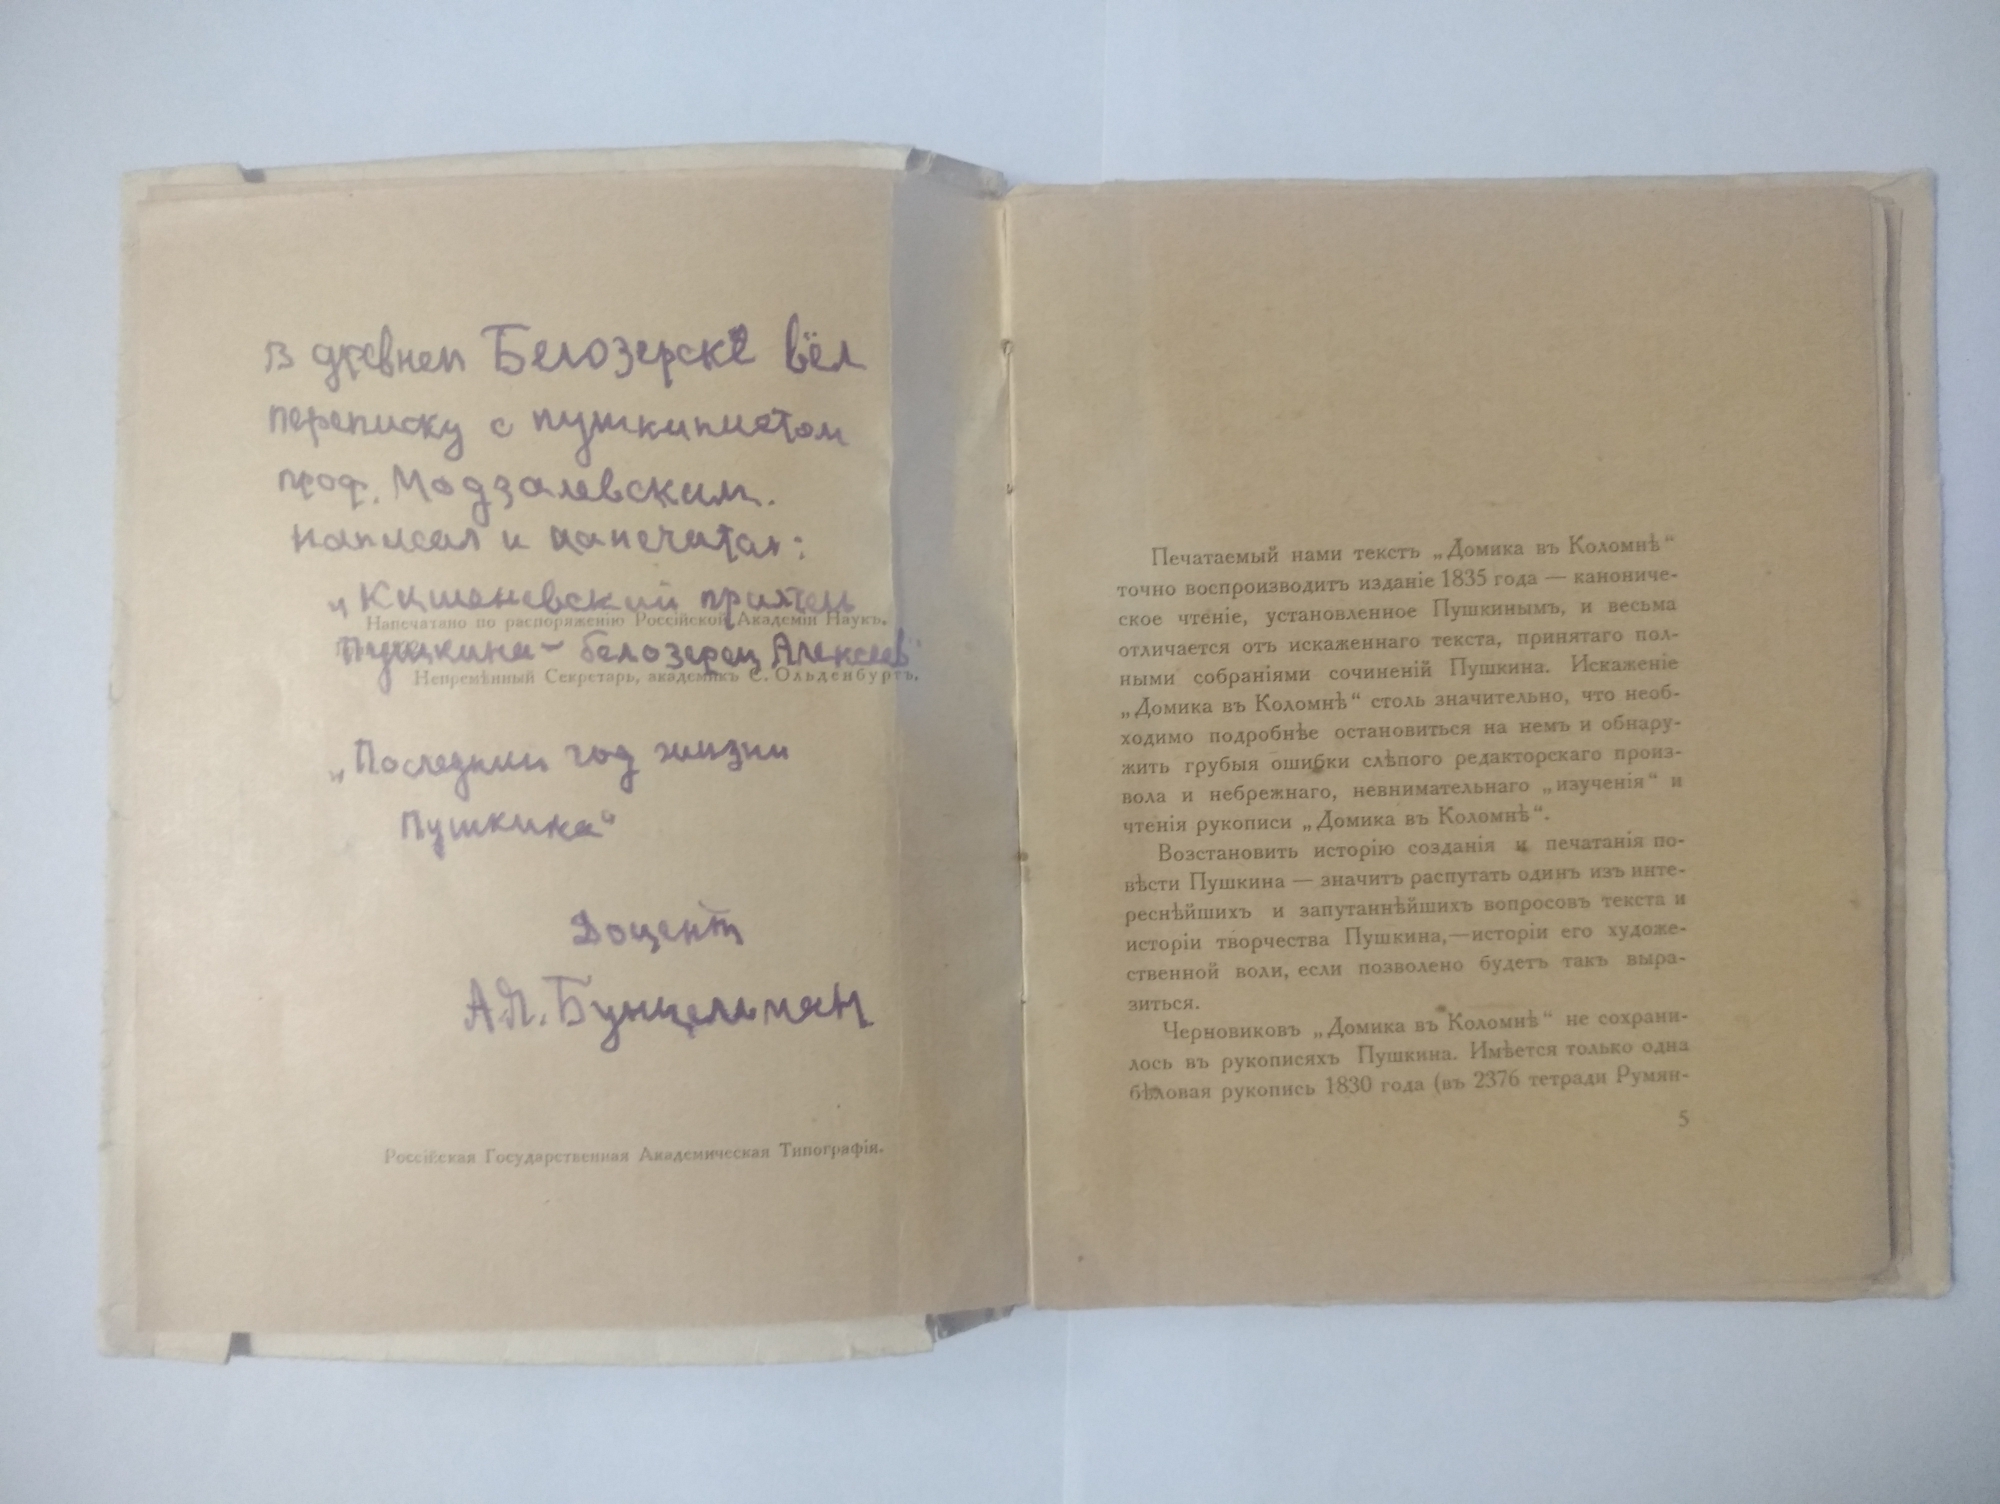 В древнем Белозерске вёл
переписку с пушкинистом
проф. Модзалевским.
написал и напечатал:
„Кишеневский приятель
Напечатано по распоряженію Россійской Академіи Наукъ.
Пушкина – белозерец Алексеев"
Непремѣнный Секретарь, академикъ С. Ольденбургъ.
„Последний год жизни
Пушкина"
Доцент
А.П. Бунцельман
Россійская Государственная Академическая Типографія.
Печатаемый нами текстъ „Домика въ Коломнѣ"
точно воспроизводитъ изданіе 1835 года — канониче-
ское чтеніе, установленное Пушкинымъ, и весьма
отличается отъ искаженнаго текста, принятаго пол-
ными собраніями сочиненій Пушкина. Искаженіе
„Домика въ Коломнѣ" столь значительно, что необ-
ходимо подробнѣе остановиться на немъ и обнару-
жить грубыя ошибки слѣпого редакторскаго произ-
вола и небрежнаго, невнимательнаго „изученія" и
чтенія рукописи „Домика въ Коломнѣ".
Возстановить исторію созданія и печатанія по-
вѣсти Пушкина — значитъ распутать одинъ изъ инте-
реснѣйшихъ и запутаннѣйшихъ вопросовъ текста и
исторіи творчества Пушкина,—исторіи его художе-
ственной воли, если позволено будетъ такъ выра-
зиться.
Черновиковъ „Домика въ Коломнѣ" не сохрани-
лось въ рукописяхъ Пушкина. Имѣется только одна
бѣловая рукопись 1830 года (въ 2376 тетради Румян-
5